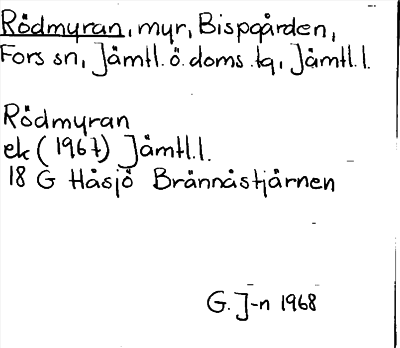 Rödmyran, myr, Bispgården,
Fors sn, Jämtl. ö. doms. tg, Jämtl. l.
Rödmyran
ek (1967) Jämtl. l.
18 G Håsjö Brännåstjärnen
G. J-n 1968